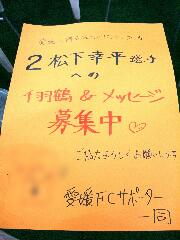 2 松下幸平選手
への
千羽鶴 & メッセージ
募集中♡
ご協力よろしくお願いします
愛媛FCサポーター
一同